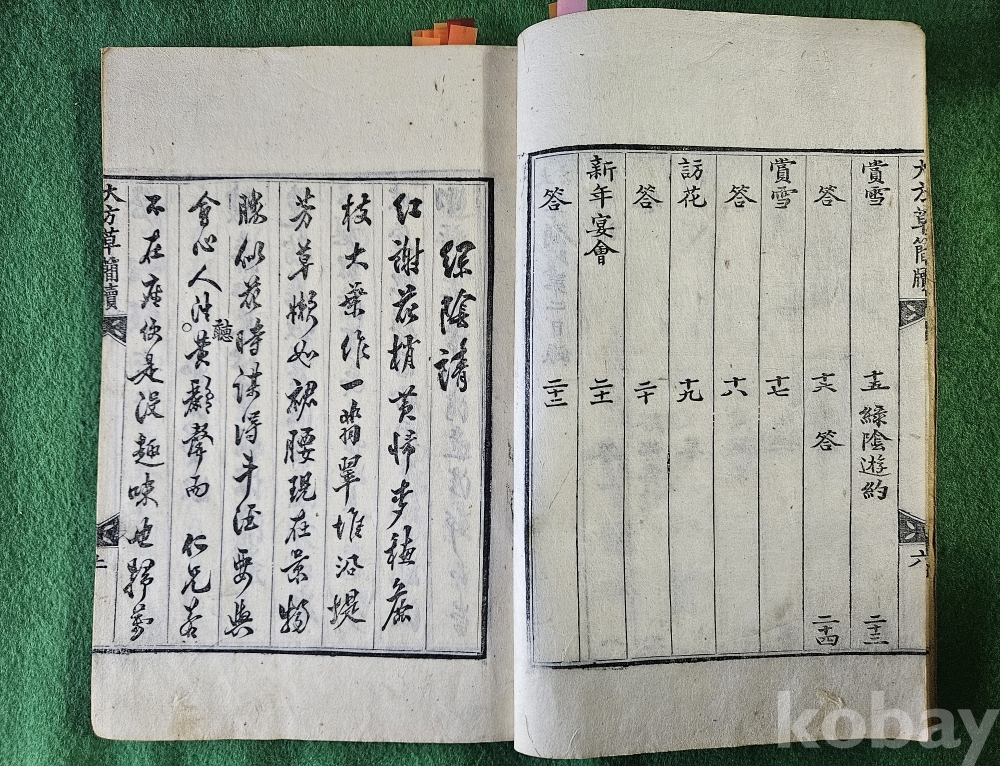 大方草簡牘 六
賞雪 十五 綠陰遊約 二十三
答 十六 答 二十四
賞雪 十七
答 十八
訪花 十九
答 二十
新年宴會 二十一
答 二十二
綠陰請
紅謝花梢黃歸麥穗麤
枝大葉作一翡翠堆沿堤
芳草嫩如裙腰現在景物
勝似花時謀得斗酒要與
會心人往聽黃鸝聲而 仁兄若
不在座便是沒趣味也
大方草簡牘